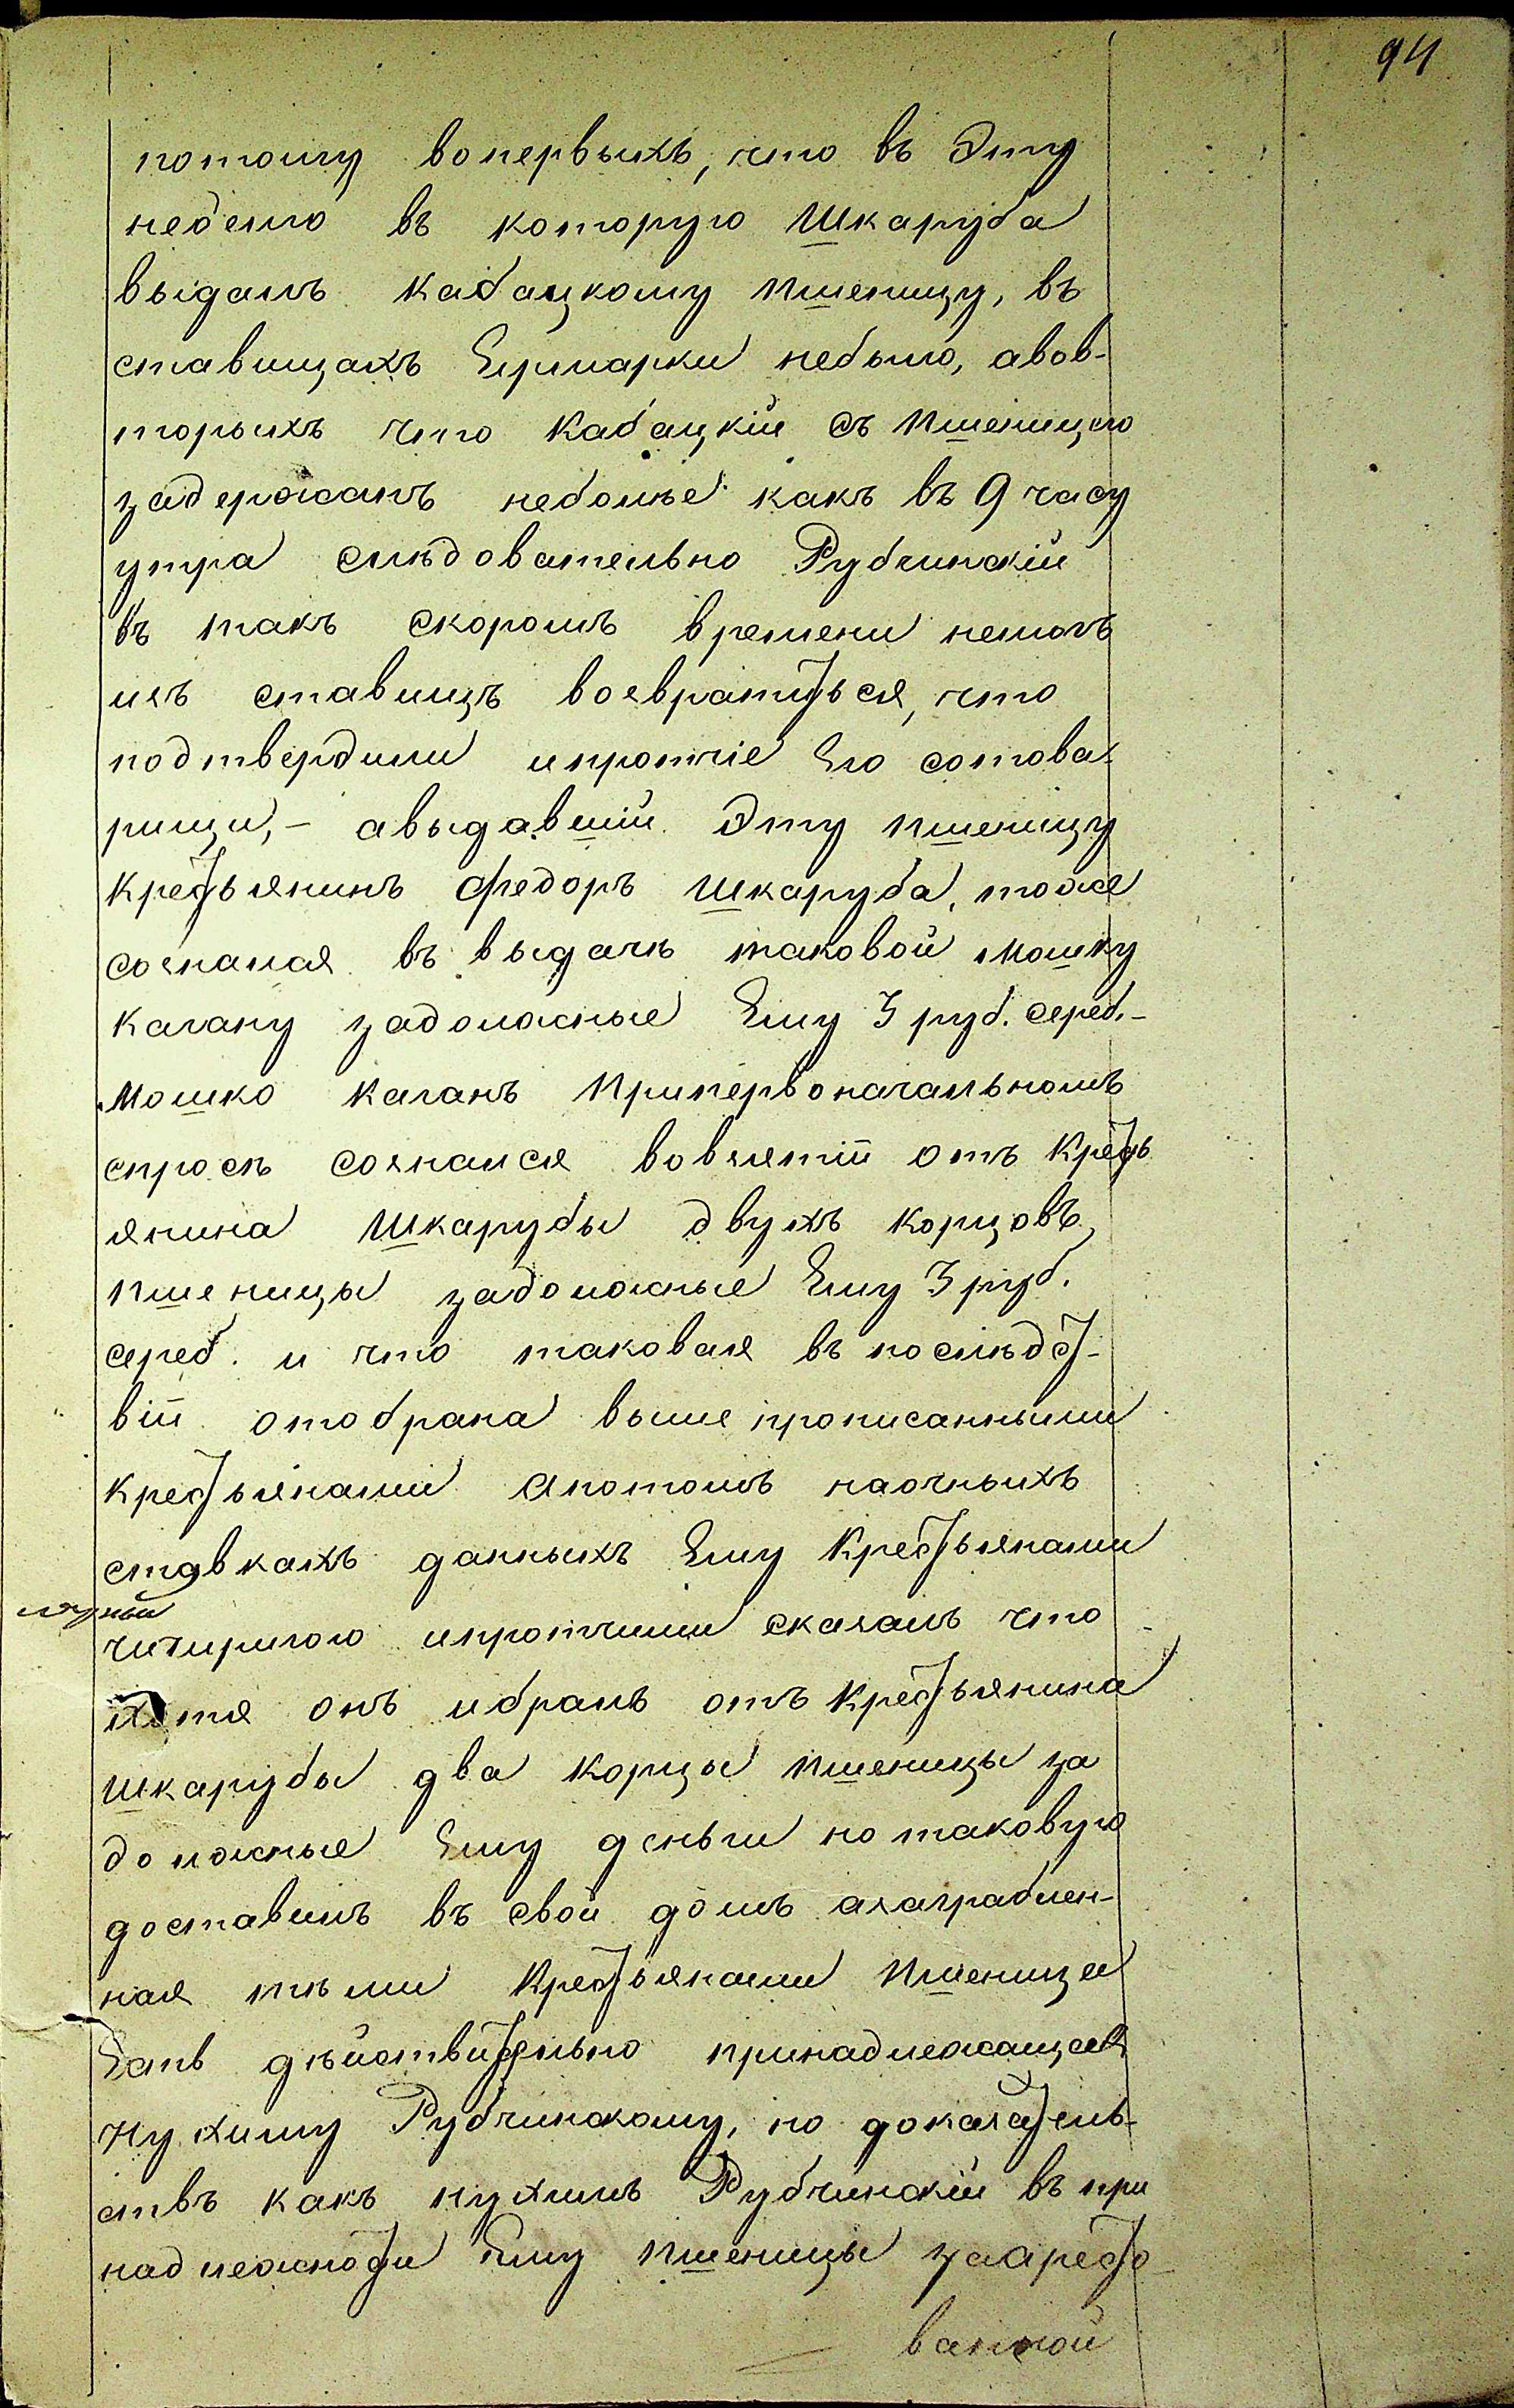 94
потому вопервыхъ, что въ Эту
неделю въ которую Шкаруба
выдалъ Кабацкому пшеницу, въ
ставищахъ Ермарки небыло, авов-
торыхъ что Кабацкій съ пшеницею
задержанъ небольше какъ въ 9 часу
утра слѣдовательно Рубчинскій
въ такъ скоромъ времени немогъ
изъ ставищъ возвратиться, что
подтвердили ипротчіе Его сотова-
рищи,- авыдавшій Эту пшеницу
Крестьянинъ Федоръ Шкаруба, тоже
сознался въ выдачѣ таковой Мошку
Кагану задолжные Ему 3 руб. сереб.-
Мошко Каганъ Припервоначальномъ
спросѣ сознался вовзятіи отъ Кресть
янина Шкарубы двухъ Корцовъ
пшеницы задолжные Ему 3 руб.
сереб. и что таковая въ послѣдст-
віи отобрана выше прописанными
Крестьянами Апотомъ наочныхъ
ставкахъ данныхъ Ему Крестьянами
Чигириною ипротчими сказалъ что
хотя онъ ибралъ отъ Крестьянина
Шкарубы два Корцы пшеницы за
должные Ему деньги но таковую
доставилъ въ свой домъ азаграблен-
ная тѣми Крестьянами пшеница
Есть дѣйствительно принадлежащая
Нухиму Рубчинскому, но доказатель-
ствъ какъ Нухимъ Рубчинскій въ при
надлежности Ему пшеницы зааресто-
ванной